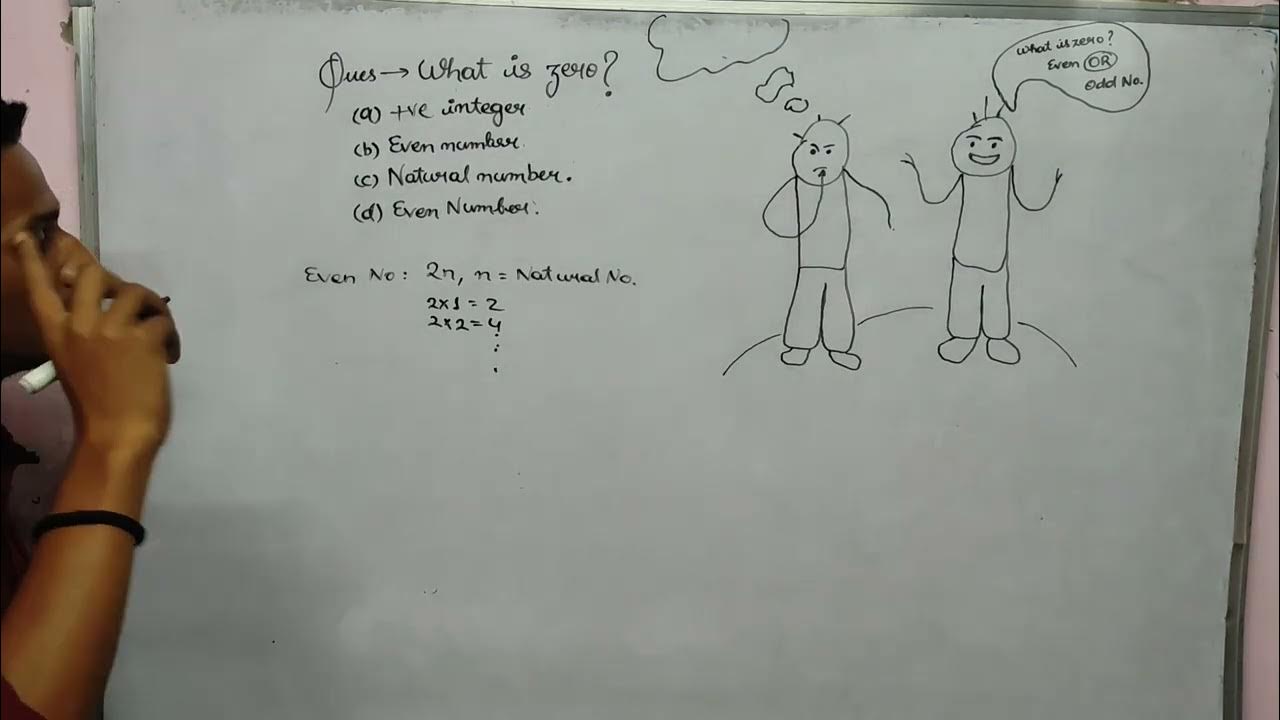 Ques → What is zero?
(a) +ve integer
(b) Even number.
(c) Natural number.
(d) Even Number.
Even No: 2n, n = Natural No.
2×1 = 2
2×2 = 4
:
.
What is zero?
Even OR
Odd No.